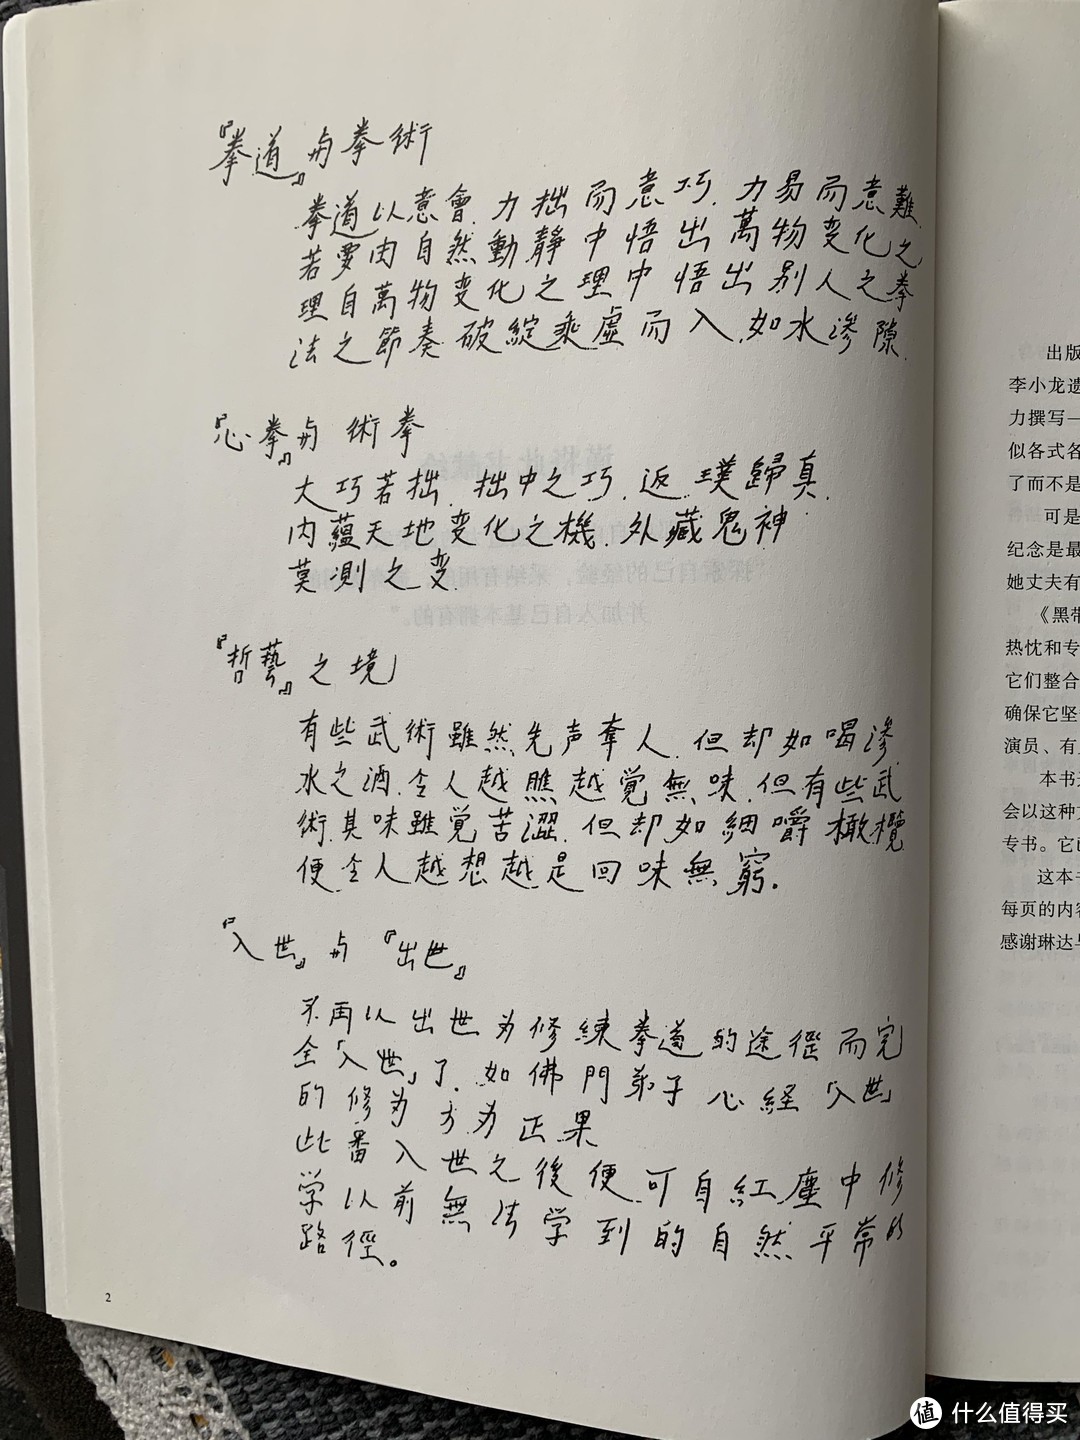 『拳道』与拳術
拳道以意會．力拙而意巧．力易而意難．
若要由自然動靜中悟出萬物变化之
理自萬物变化之理中悟出别人之拳
法之節奏破綻乘虛而入．如水滲隙．
『心拳』与術拳
大巧若拙．拙中之巧．返璞歸真．
内蘊天地变化之機．外藏鬼神
莫測之变．
『哲藝』之境
有些武術雖然先声奪人．但却如喝滲
水之酒．令人越瞧越覚無味．但有些武
術．其味雖覚苦澀．但却如細嚼橄欖
便令人越想越是回味無窮．
『入世』与『出世』
不再以出世为修練拳道的途徑而完
全「入世」了．如佛門弟子心経「入世」
的修为方为正果
此番入世之後便可自紅塵中修
学以前無法学到的自然平常的
路徑。
2
出版
李小龙遗
力撰写—
似各式各
了而不是
可是
纪念是最
她丈夫有
《黑带
热忱和专
它们整合
确保它坚
演员、有
本书
会以这种
专书。它
这本书
每页的内容
感谢琳达
值 什么值得买